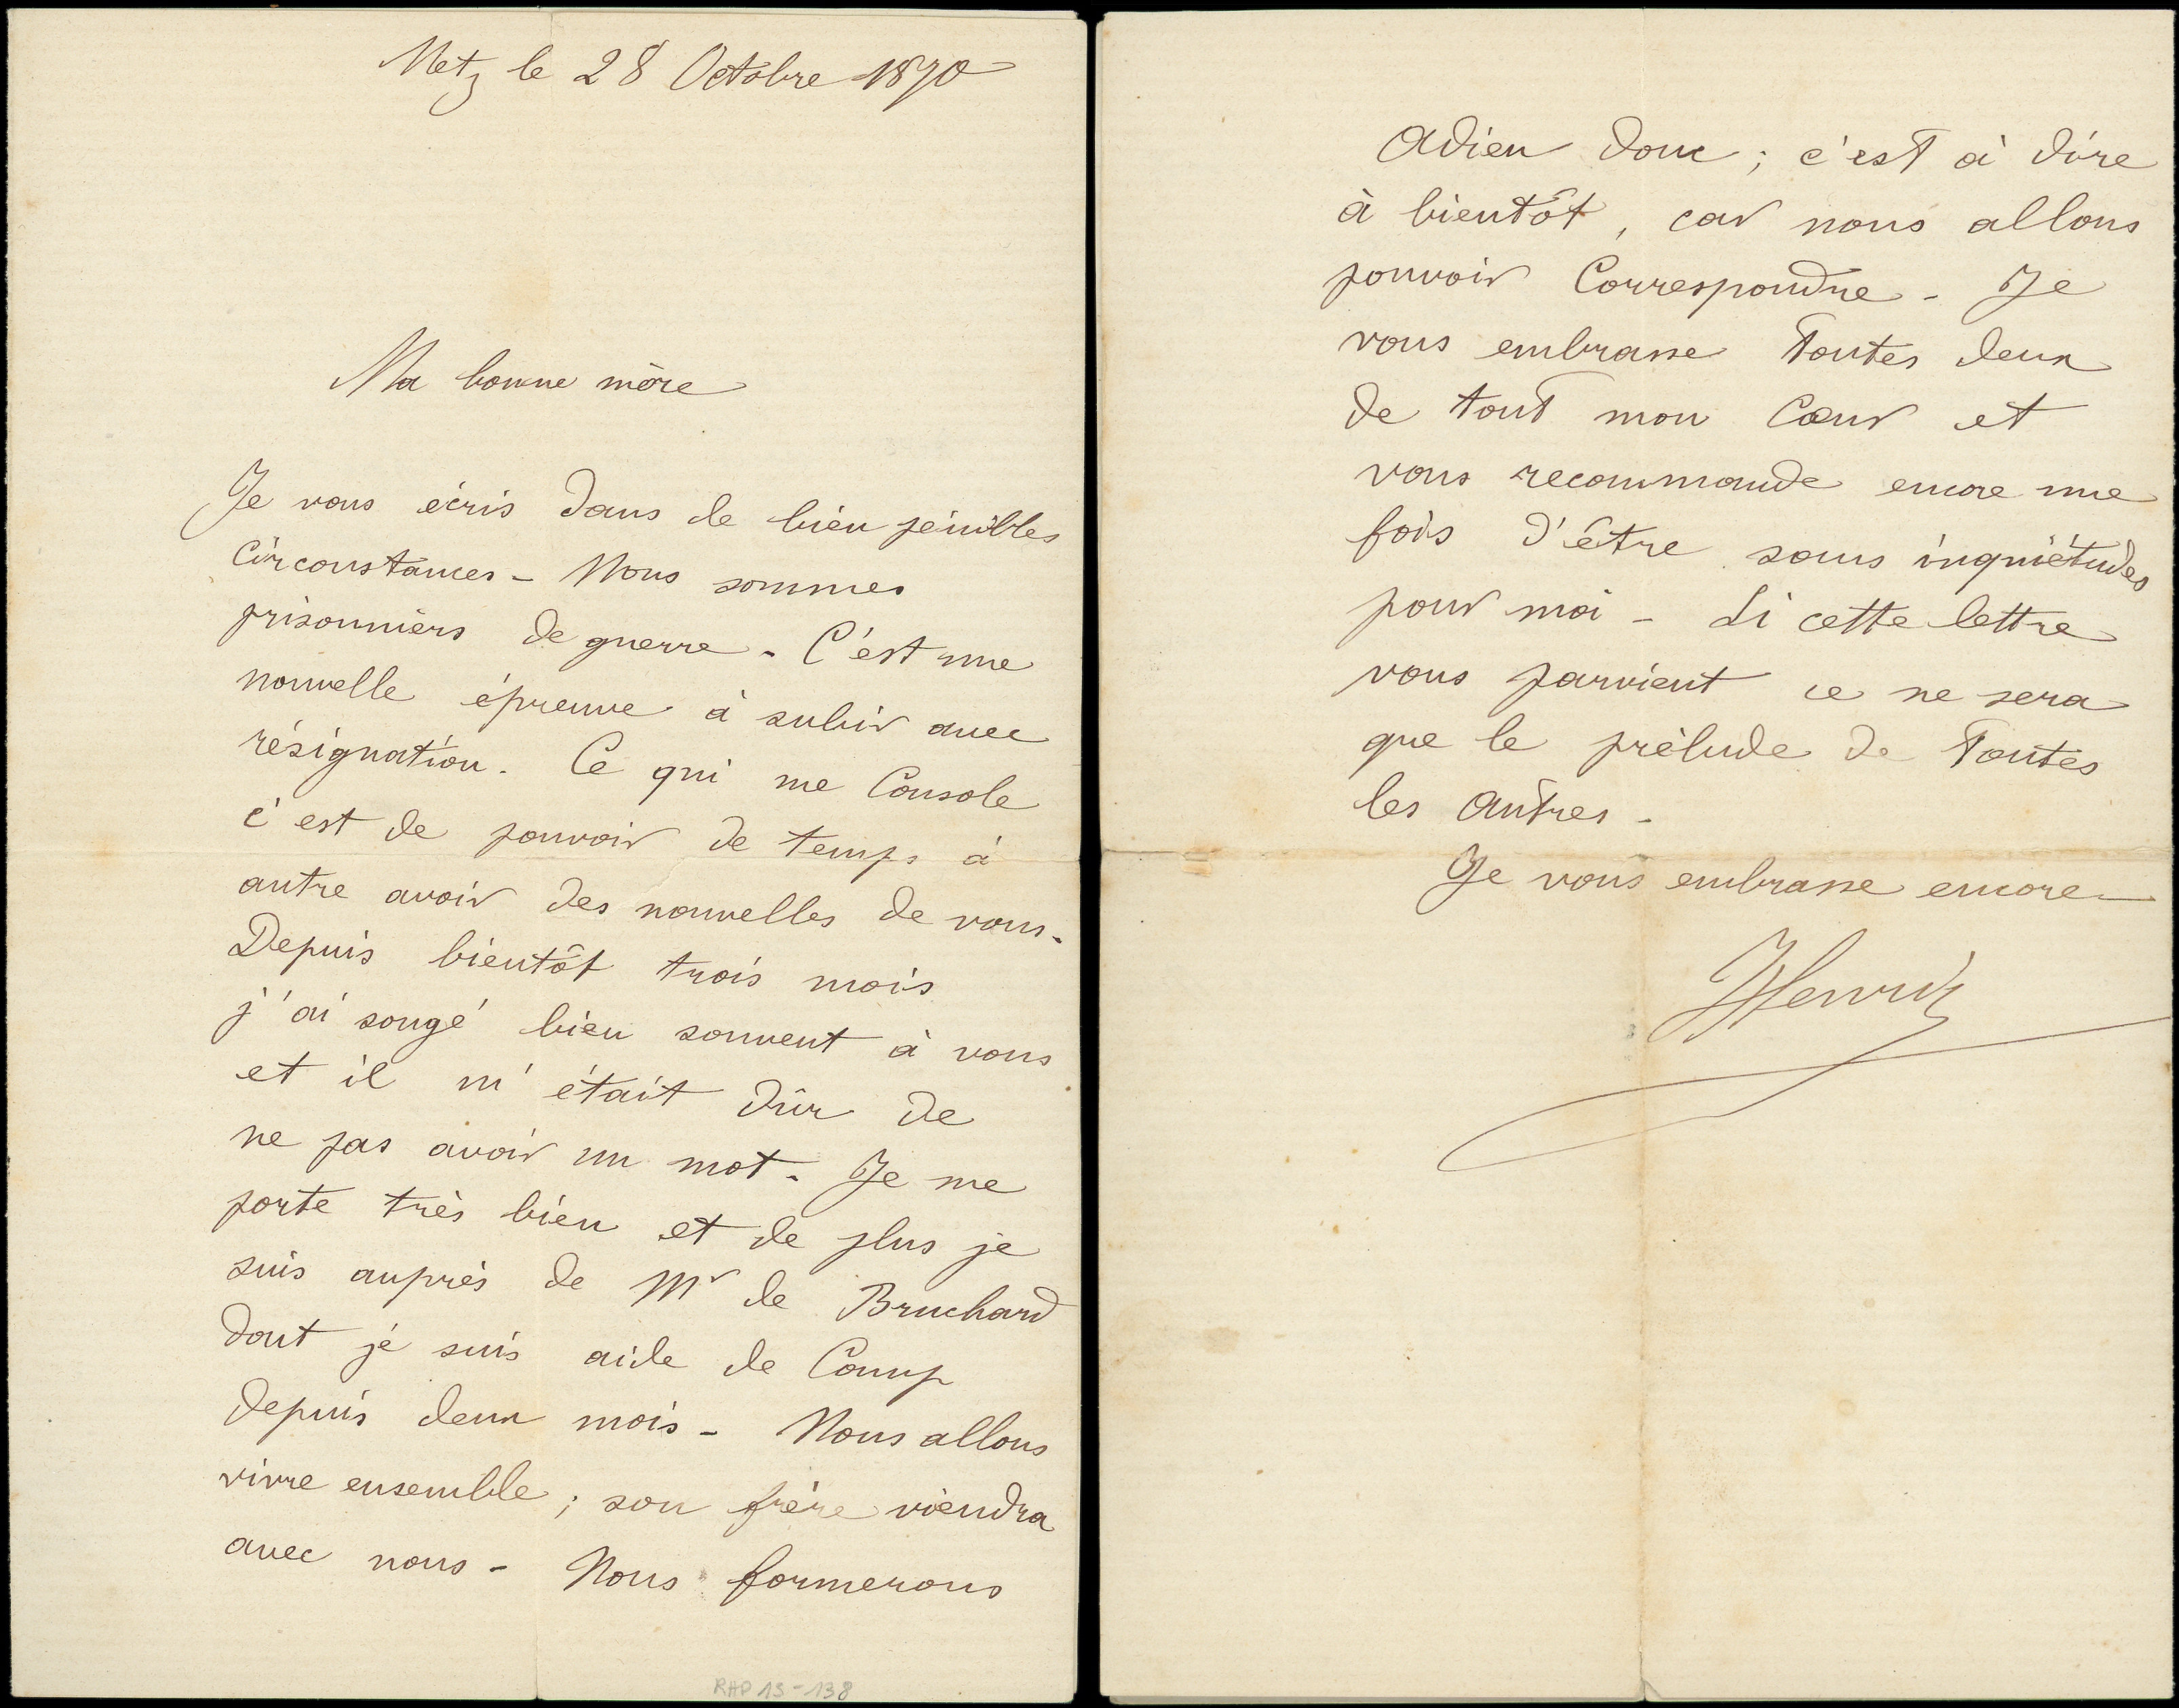 Metz le 28 Octobre 1870
Ma bonne mère
Je vous écris dans de bien pénibles
circonstances - Nous sommes
prisonniers de guerre - C'est une
nouvelle épreuve à subir avec
résignation. Ce qui me Console
c'est de pouvoir de temps à
autre avoir des nouvelles de vous -
Depuis bientôt trois mois
j'ai songé bien souvent à vous
et il m'était dûr de
ne pas avoir un mot - Je me
porte très bien et de plus je
suis auprès de Mr de Bruchard
dont je suis aide de Camp
depuis deux mois - Nous allons
vivre ensemble ; son frère viendra
avec nous - Nous formerons
RHP 13-138
Adieu donc ; c'est à dire
à bientôt, car nous allons
pouvoir Correspondre - Je
vous embrasse toutes deux
de tout mon Cœur et
vous recommande encore une
fois d'être sans inquiétudes
pour moi - Si cette lettre
vous parvient ce ne sera
que le prélude de toutes
les autres -
Je vous embrasse encore -
Henri